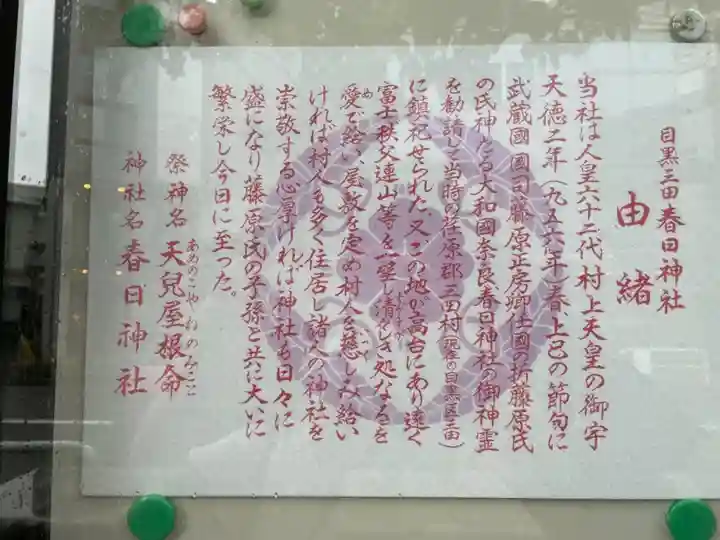 目黒三田春日神社
由緒
当社は人皇六十二代村上天皇の御宇
天徳二年(九五六年)春、上巳の節句に
武蔵國國司藤原正房卿任國の折藤原氏
の氏神たる大和國奈良春日神社の御神霊
を勧請して当時の荏原郡三田村(現在の目黒区三田)
に鎮祀せられた。又この地が高台にあり遠く
富士秩父連山等を一望し清き処なるを
愛で給い、屋敷を定め村人を慈しみ給い
ければ村人も多く住居し諸人の神社を
崇敬する心厚ければ神社も日々に
盛になり藤原氏の子孫と共に大いに
繁栄し今日に至った。
祭神名 天兒屋根命
神社名 春日神社